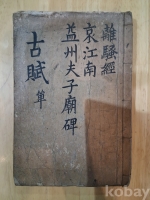 離騷經
哀江南
益州夫子廟碑
古賦 單
kobay